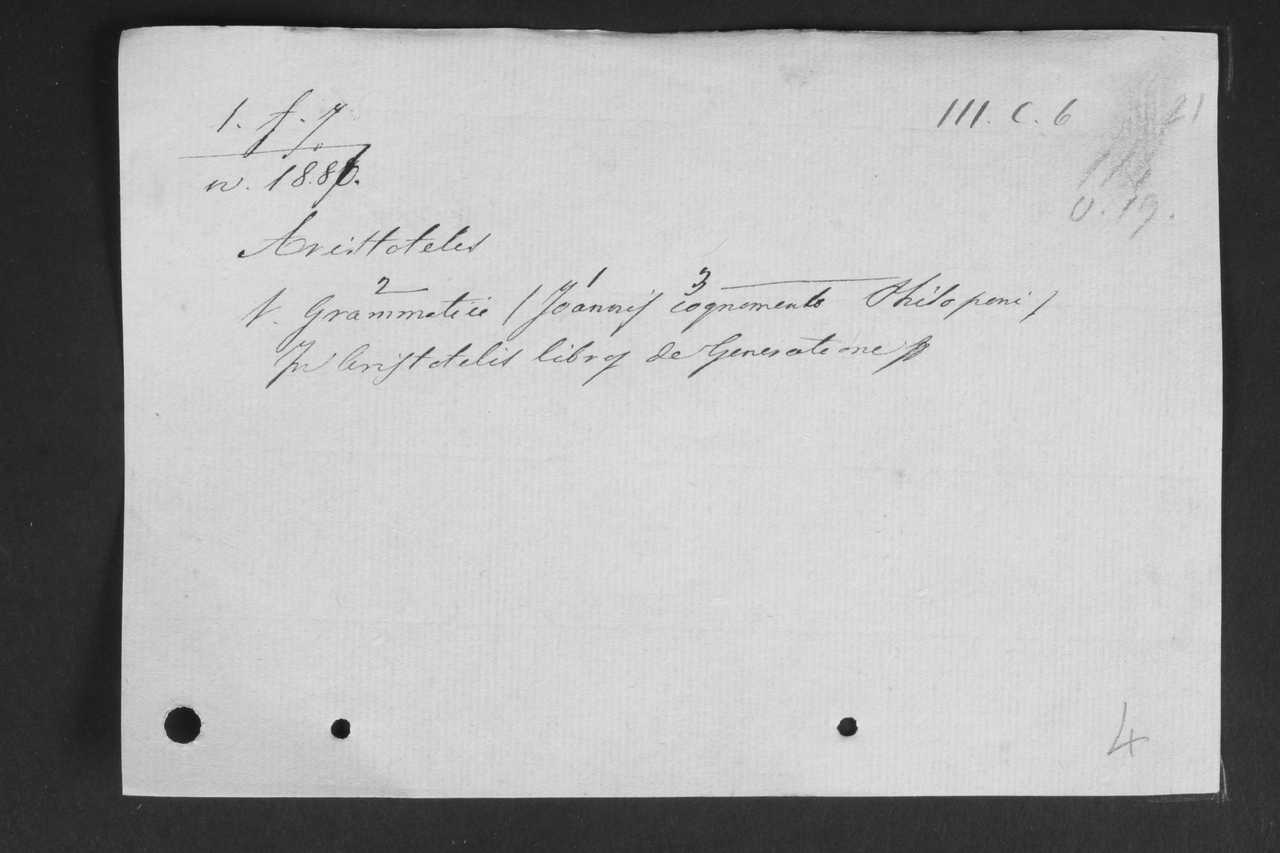 1. f. 7
III. C. 6
21
O. 19.
Aristoteles
2 1 3
V. Grammatici (Joannis cognomento Philoponi)
In Aristotelis libros de Generatione
4